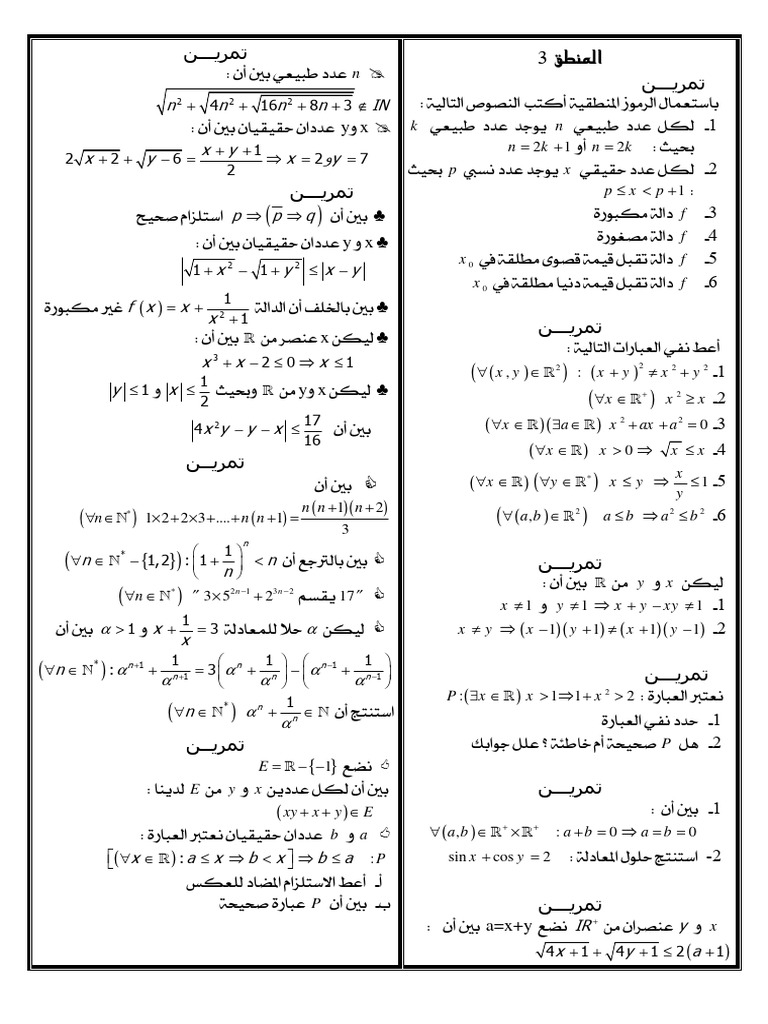 المنطق 3
تمريـــن
باستعمال الرموز المنطقية أكتب النصوص التالية :
1ـ لكل عدد طبيعي n يوجد عدد طبيعي k
بحيث : n = 2k أو n = 2k + 1
2ـ لكل عدد حقيقي x يوجد عدد نسبي p بحيث
: p ≤ x < p + 1
3ـ f دالة مكبورة
4ـ f دالة مصغورة
5ـ f دالة تقبل قيمة قصوى مطلقة في x₀
6ـ f دالة تقبل قيمة دنيا مطلقة في x₀
تمريـــن
أعط نفي العبارات التالية :
1ـ (∀(x, y) ∈ ℝ²) : (x + y)² ≠ x² + y²
2ـ (∀x ∈ ℝ⁺) x² ≥ x
3ـ (∀x ∈ ℝ)(∃a ∈ ℝ) x² + ax + a² = 0
4ـ (∀x ∈ ℝ) x > 0 ⇒ √x ≤ x
5ـ (∀x ∈ ℝ)(∀y ∈ ℝ*) x ≤ y ⇒ x/y ≤ 1
6ـ (∀(a,b) ∈ ℝ²) a ≤ b ⇒ a² ≤ b²
تمريـــن
ليكن x و y من ℝ بين أن :
1ـ x ≠ 1 و y ≠ 1 ⇒ x + y − xy ≠ 1
2ـ x ≠ y ⇒ (x − 1)(y + 1) ≠ (x + 1)(y − 1)
تمريـــن
نعتبر العبارة : P : (∃x ∈ ℝ) x > 1 ⇒ 1 + x² > 2
1ـ حدد نفي العبارة
2ـ هل P صحيحة أم خاطئة ؟ علل جوابك
تمريـــن
1ـ بين أن :
∀(a,b) ∈ ℝ⁺ × ℝ⁺ : a + b = 0 ⇒ a = b = 0
2- استنتج حلول المعادلة : sin x + cos y = 2
تمريـــن
x و y عنصران من IR⁺ نضع a=x+y بين أن :
√(4x + 1) + √(4y + 1) ≤ 2(a + 1)
تمريـــن
✍ n عدد طبيعي بين أن :
√(n² + √(4n² + √(16n² + 8n + 3))) ∉ IN
✍ x و y عددان حقيقيان بين أن :
2√(x + 2) + √(y − 6) = (x + y + 1)/2 ⇒ x = 2 و y = 7
تمريـــن
♣ بين أن p ⇒ (p̅ ⇒ q) استلزام صحيح
♣ x و y عددان حقيقيان بين أن :
|√(1 + x²) − √(1 + y²)| ≤ |x − y|
♣ بين بالخلف أن الدالة f(x) = x + 1/(x² + 1) غير مكبورة
♣ ليكن x عنصر من ℝ بين أن :
x³ + x − 2 ≤ 0 ⇒ x ≤ 1
♣ ليكن x و y من ℝ وبحيث |x| ≤ 1/2 و |y| ≤ 1
بين أن |4x²y − y − x| ≤ 17/16
تمريـــن
بين أن
(∀n ∈ ℕ*) 1×2 + 2×3 + .... + n(n + 1) = n(n + 1)(n + 2)/3
بين بالترجع أن (∀n ∈ ℕ* − {1,2}) : (1 + 1/n)ⁿ < n
(∀n ∈ ℕ*) "17 يقسم 3×5²ⁿ⁻¹ + 2³ⁿ⁻²"
ليكن α حلا للمعادلة x + 1/x = 3 و α > 1 بين أن
(∀n ∈ ℕ*) : αⁿ⁺¹ + 1/αⁿ⁺¹ = 3(αⁿ + 1/αⁿ) − (αⁿ⁻¹ + 1/αⁿ⁻¹)
استنتج أن (∀n ∈ ℕ*) αⁿ + 1/αⁿ ∈ ℕ
تمريـــن
نضع E = ℝ − {−1}
بين أن لكل عددين x و y من E لدينا :
(xy + x + y) ∈ E
a و b عددان حقيقيان نعتبر العبارة :
P : [(∀x ∈ ℝ) : a ≤ x ⇒ b < x] ⇒ b ≤ a
أـ أعط الاستلزام المضاد للعكس
بـ بين أن P عبارة صحيحة